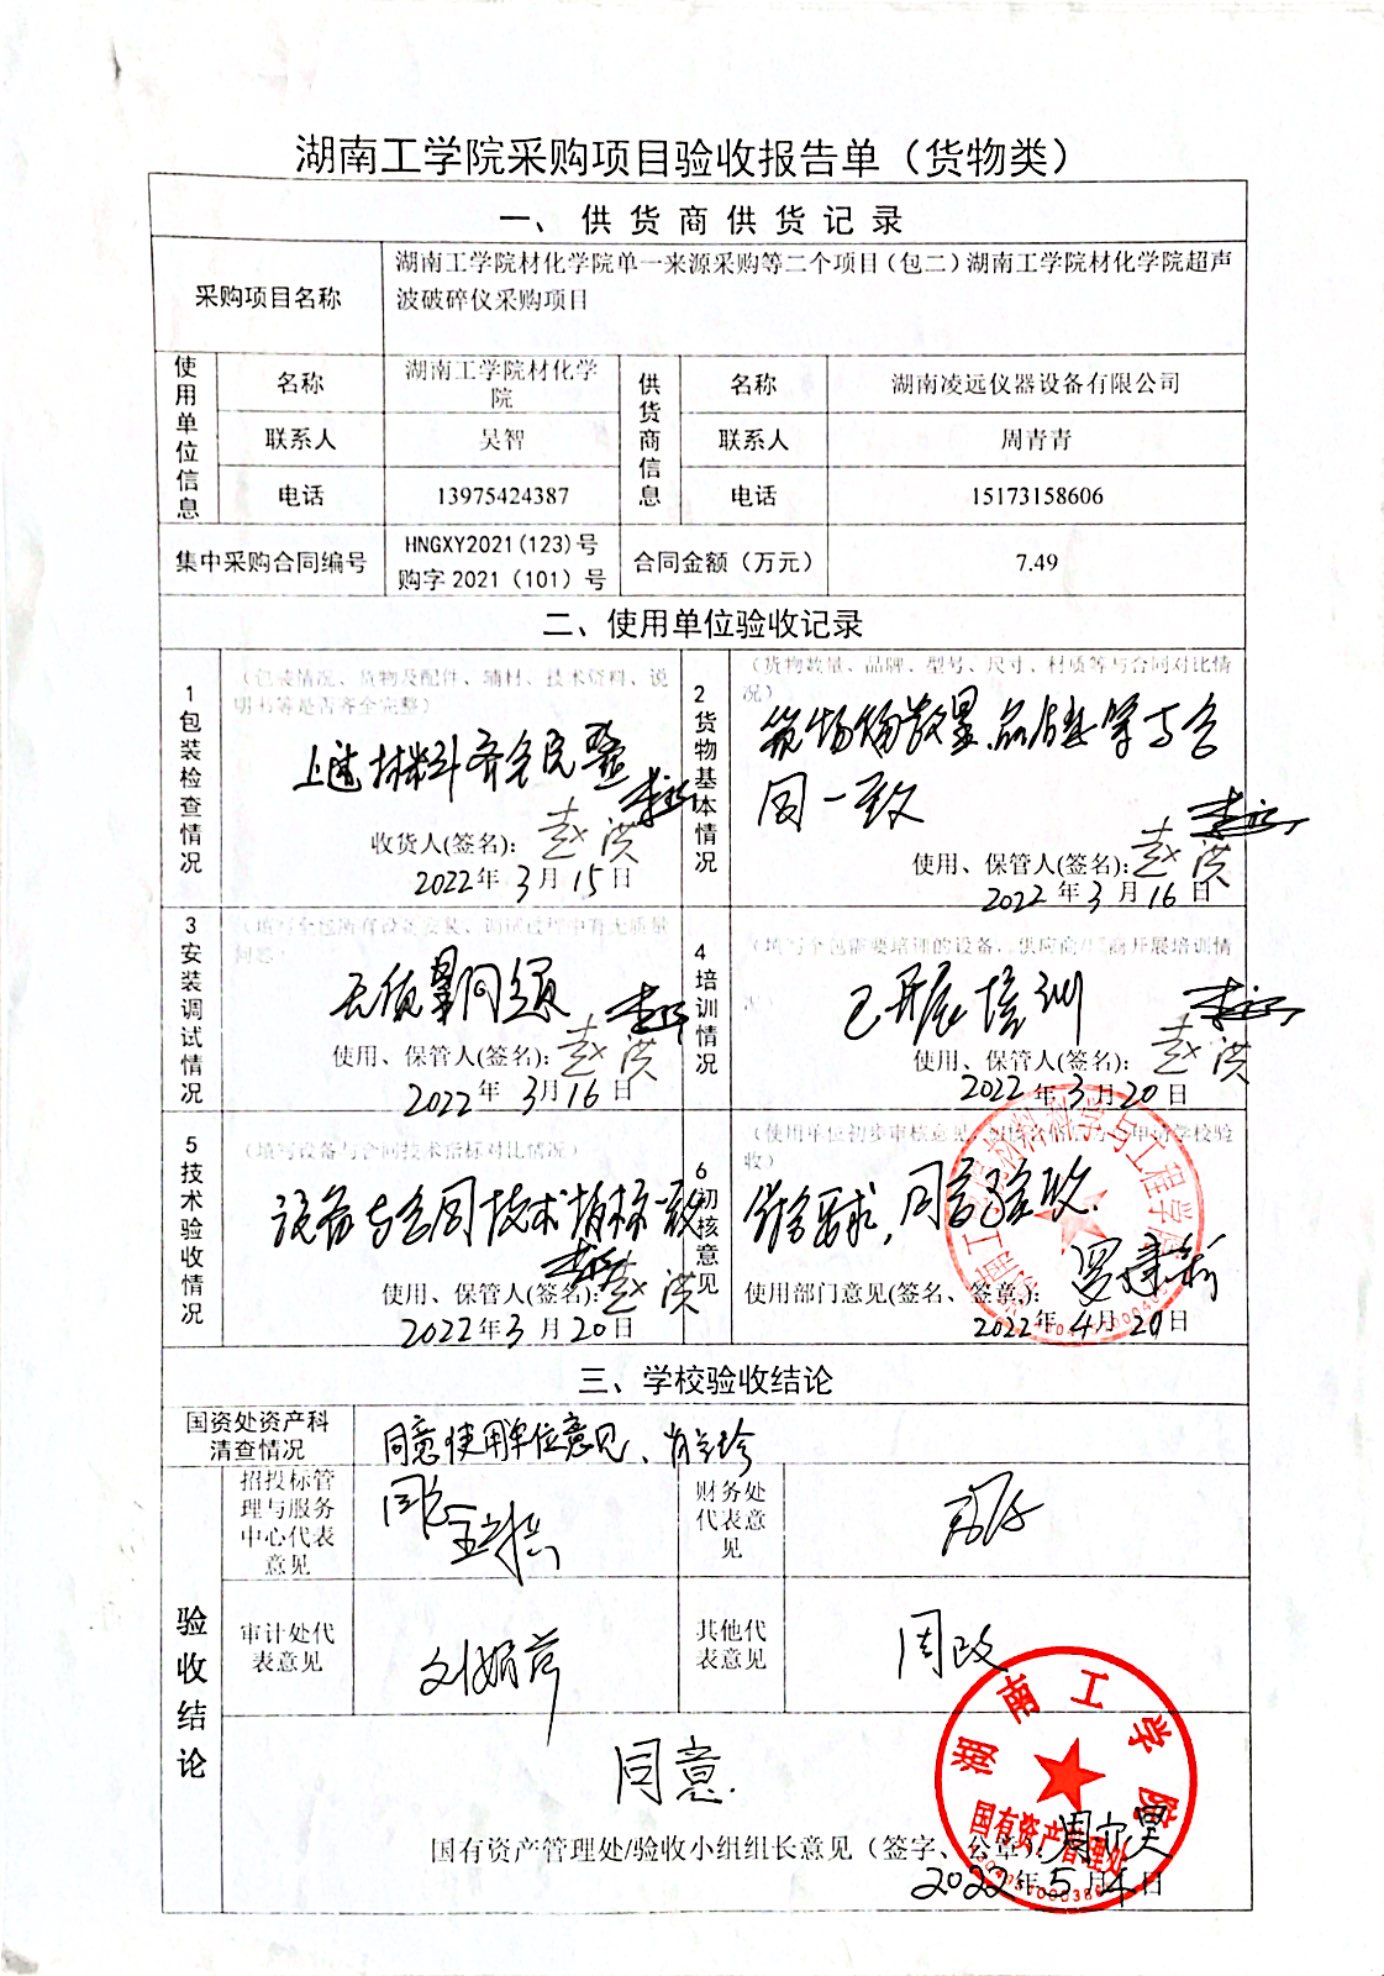 湖南工学院采购项目验收报告单（货物类）
一、供货商供货记录
采购项目名称
湖南工学院材化学院单一来源采购等二个项目（包二）湖南工学院材化学院超声
波破碎仪采购项目
使用单位信息
名称
湖南工学院材化学
院
供货商信息
名称
湖南凌远仪器设备有限公司
联系人
吴智
联系人
周青青
电话
13975424387
电话
15173158606
集中采购合同编号
HNGXY2021(123)号
购字2021（101）号
合同金额（万元）
7.49
二、使用单位验收记录
1包装检查情况
（包装情况、货物及配件、辅材、技术资料、说
明书等是否齐全完整）
上述材料齐全完整
收货人(签名): 赵洪
2022年3月15日
2货物基本情况
（货物数量、品牌、型号、尺寸、材质等与合同对比情
况）
货物数量品牌等与合
同一致
使用、保管人(签名): 赵洪
2022年3月16日
3安装调试情况
（填写全包所有设备安装、调试过程中有无质量
问题）
无质量问题
使用、保管人(签名): 赵洪
2022年3月16日
4培训情况
（填写全包需要培训的设备，供应商/厂商开展培训情
况）
已开展培训
使用、保管人(签名): 赵洪
2022年3月20日
5技术验收情况
（填写设备与合同技术指标对比情况）
设备与合同技术指标一致
使用、保管人(签名): 赵洪
2022年3月20日
6初核意见
（使用单位初步审核意见，申请学校验
收）
符合要求，同意验收.
使用部门意见(签名、签章): 罗建新
2022年4月20日
材料科学与工程学院
三、学校验收结论
国资处资产科
清查情况
同意使用单位意见、
验收结论
招投标管
理与服务
中心代表
意见
同意
财务处
代表意
见
审计处代
表意见
其他代
表意见
周政
同意.
国有资产管理处/验收小组组长意见（签字、公章）:
2022年5月4日
湖南工学院
国有资产管理处